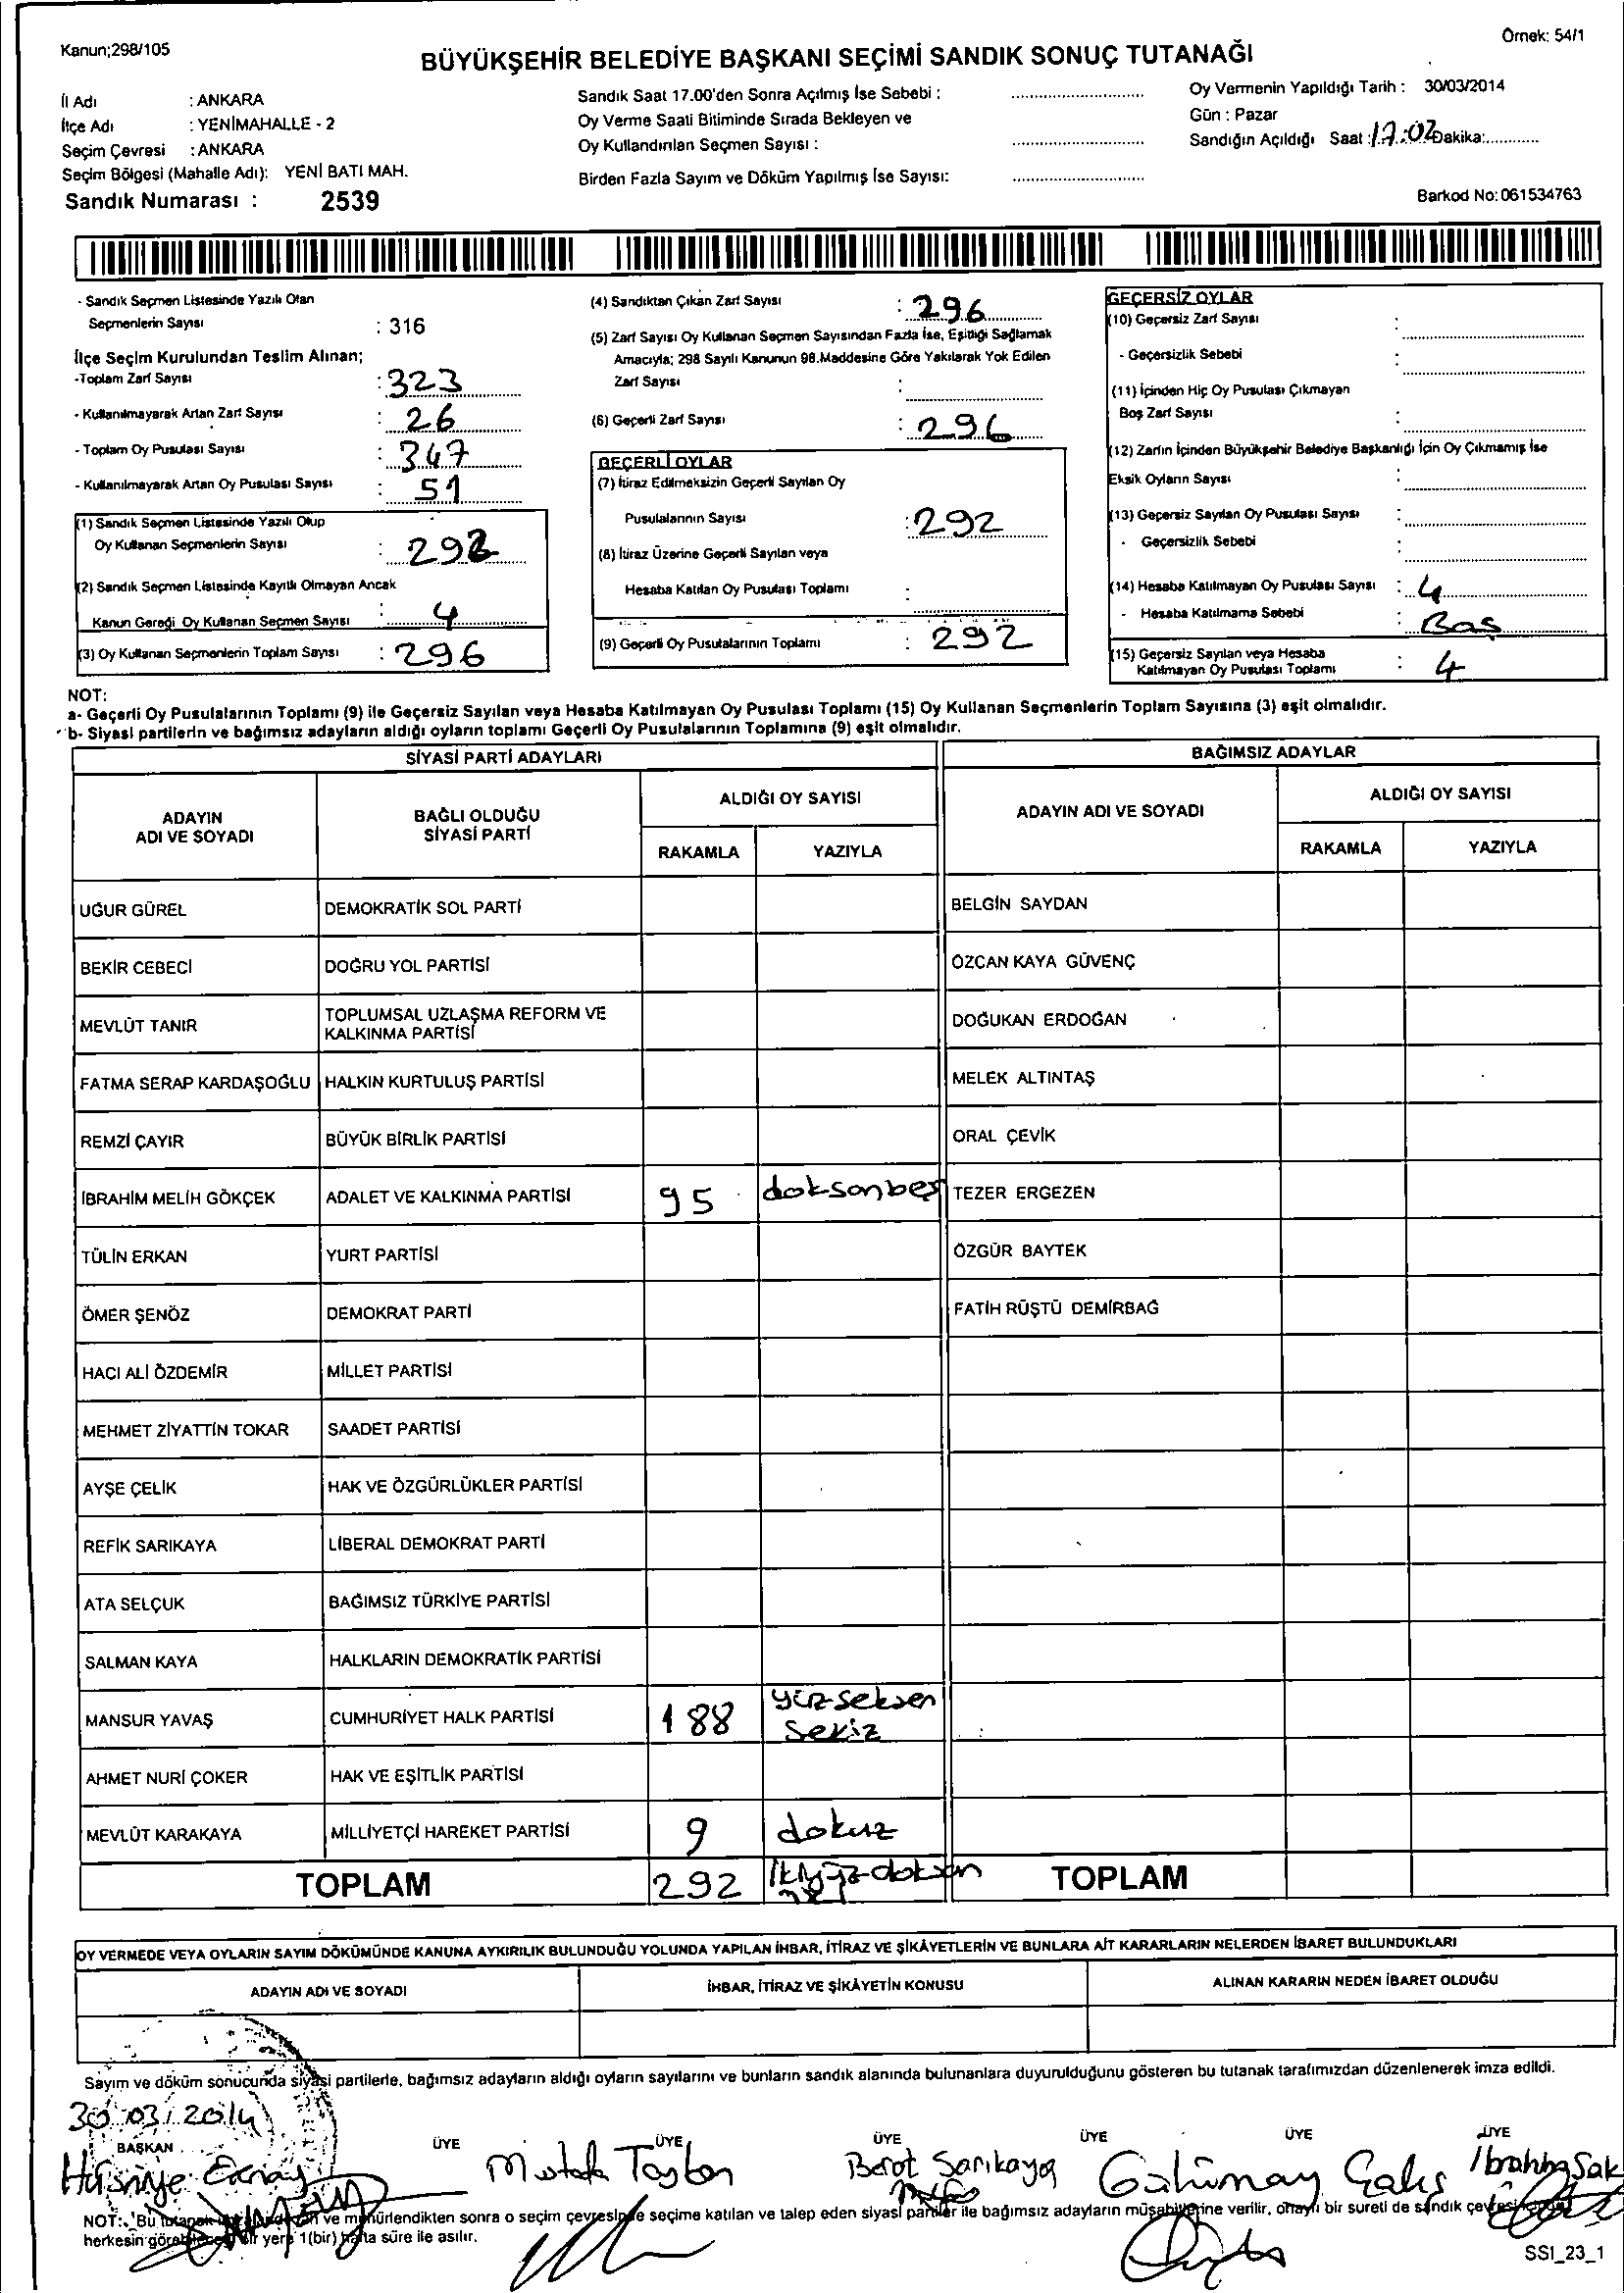 Kanun;298/105
Örnek: 54/1
BÜYÜKŞEHİR BELEDİYE BAŞKANI SEÇİMİ SANDIK SONUÇ TUTANAĞI
İl Adı : ANKARA
İlçe Adı : YENİMAHALLE - 2
Seçim Çevresi : ANKARA
Seçim Bölgesi (Mahalle Adı): YENİ BATI MAH.
Sandık Numarası : 2539
Sandık Saat 17.00'den Sonra Açılmış İse Sebebi :
Oy Verme Saati Bitiminde Sırada Bekleyen ve
Oy Kullandırılan Seçmen Sayısı :
Birden Fazla Sayım ve Döküm Yapılmış İse Sayısı:
Oy Vermenin Yapıldığı Tarih : 30/03/2014
Gün : Pazar
Sandığın Açıldığı Saat : 17:02 Dakika:
Barkod No: 061534763
- Sandık Seçmen Listesinde Yazılı Olan
Seçmenlerin Sayısı : 316
İlçe Seçim Kurulundan Teslim Alınan;
-Toplam Zarf Sayısı : 323
- Kullanılmayarak Artan Zarf Sayısı : 26
- Toplam Oy Pusulası Sayısı : 347
- Kullanılmayarak Artan Oy Pusulası Sayısı : 51
(1) Sandık Seçmen Listesinde Yazılı Olup
Oy Kullanan Seçmenlerin Sayısı : 292
(2) Sandık Seçmen Listesinde Kayıtlı Olmayan Ancak
Kanun Gereği Oy Kullanan Seçmen Sayısı : 4
(3) Oy Kullanan Seçmenlerin Toplam Sayısı : 296
(4) Sandıktan Çıkan Zarf Sayısı : 296
(5) Zarf Sayısı Oy Kullanan Seçmen Sayısından Fazla İse, Eşitliği Sağlamak
Amacıyla; 298 Sayılı Kanunun 98.Maddesine Göre Yakılarak Yok Edilen
Zarf Sayısı :
(6) Geçerli Zarf Sayısı : 296
GEÇERLİ OYLAR
(7) İtiraz Edilmeksizin Geçerli Sayılan Oy
Pusulalarının Sayısı : 292
(8) İtiraz Üzerine Geçerli Sayılan veya
Hesaba Katılan Oy Pusulası Toplamı :
(9) Geçerli Oy Pusulalarının Toplamı : 292
GEÇERSİZ OYLAR
(10) Geçersiz Zarf Sayısı :
- Geçersizlik Sebebi :
(11) İçinden Hiç Oy Pusulası Çıkmayan
Boş Zarf Sayısı :
(12) Zarfın İçinden Büyükşehir Belediye Başkanlığı İçin Oy Çıkmamış İse
Eksik Oyların Sayısı :
(13) Geçersiz Sayılan Oy Pusulası Sayısı :
- Geçersizlik Sebebi :
(14) Hesaba Katılmayan Oy Pusulası Sayısı : 4
- Hesaba Katılmama Sebebi : Boş
(15) Geçersiz Sayılan veya Hesaba
Katılmayan Oy Pusulası Toplamı : 4
NOT:
a- Geçerli Oy Pusulalarının Toplamı (9) ile Geçersiz Sayılan veya Hesaba Katılmayan Oy Pusulası Toplamı (15) Oy Kullanan Seçmenlerin Toplam Sayısına (3) eşit olmalıdır.
b- Siyasi partilerin ve bağımsız adayların aldığı oyların toplamı Geçerli Oy Pusulalarının Toplamına (9) eşit olmalıdır.
SİYASİ PARTİ ADAYLARI
BAĞIMSIZ ADAYLAR
ADAYIN ADI VE SOYADI
BAĞLI OLDUĞU SİYASİ PARTİ
ALDIĞI OY SAYISI
RAKAMLA YAZIYLA
ADAYIN ADI VE SOYADI
ALDIĞI OY SAYISI
RAKAMLA YAZIYLA
UĞUR GÜREL DEMOKRATİK SOL PARTİ BELGİN SAYDAN
BEKİR CEBECİ DOĞRU YOL PARTİSİ ÖZCAN KAYA GÜVENÇ
MEVLÜT TANIR TOPLUMSAL UZLAŞMA REFORM VE KALKINMA PARTİSİ DOĞUKAN ERDOĞAN
FATMA SERAP KARDAŞOĞLU HALKIN KURTULUŞ PARTİSİ MELEK ALTINTAŞ
REMZİ ÇAYIR BÜYÜK BİRLİK PARTİSİ ORAL ÇEVİK
İBRAHİM MELİH GÖKÇEK ADALET VE KALKINMA PARTİSİ 95 doksanbeş TEZER ERGEZEN
TÜLİN ERKAN YURT PARTİSİ ÖZGÜR BAYTEK
ÖMER ŞENÖZ DEMOKRAT PARTİ FATİH RÜŞTÜ DEMİRBAĞ
HACI ALİ ÖZDEMİR MİLLET PARTİSİ
MEHMET ZİYATTİN TOKAR SAADET PARTİSİ
AYŞE ÇELİK HAK VE ÖZGÜRLÜKLER PARTİSİ
REFİK SARIKAYA LİBERAL DEMOKRAT PARTİ
ATA SELÇUK BAĞIMSIZ TÜRKİYE PARTİSİ
SALMAN KAYA HALKLARIN DEMOKRATİK PARTİSİ
MANSUR YAVAŞ CUMHURİYET HALK PARTİSİ 188 yüzseksen sekiz
AHMET NURİ ÇOKER HAK VE EŞİTLİK PARTİSİ
MEVLÜT KARAKAYA MİLLİYETÇİ HAREKET PARTİSİ 9 dokuz
TOPLAM 292 ikiyüzdoksan TOPLAM
OY VERMEDE VEYA OYLARIN SAYIM DÖKÜMÜNDE KANUNA AYKIRILIK BULUNDUĞU YOLUNDA YAPILAN İHBAR, İTİRAZ VE ŞİKÂYETLERİN VE BUNLARA AİT KARARLARIN NELERDEN İBARET BULUNDUKLARI
ADAYIN ADI VE SOYADI İHBAR, İTİRAZ VE ŞİKÂYETİN KONUSU ALINAN KARARIN NEDEN İBARET OLDUĞU
Sayım ve döküm sonucunda siyasi partilerle, bağımsız adayların aldığı oyların sayılarını ve bunların sandık alanında bulunanlara duyurulduğunu gösteren bu tutanak tarafımızdan düzenlenerek imza edildi.
30/03/2014
BAŞKAN ÜYE ÜYE ÜYE ÜYE ÜYE ÜYE
Hüsniye Mustafa Berat Sarıkaya
NOT: Bu ve mühürlendikten sonra o seçim çevresinde seçime katılan ve talep eden siyasi partiler ile bağımsız adayların müşahitlerine verilir, onaylı bir sureti de sandık
herkesin bir yere 1(bir) hafta süre ile asılır.
SSI_23_1